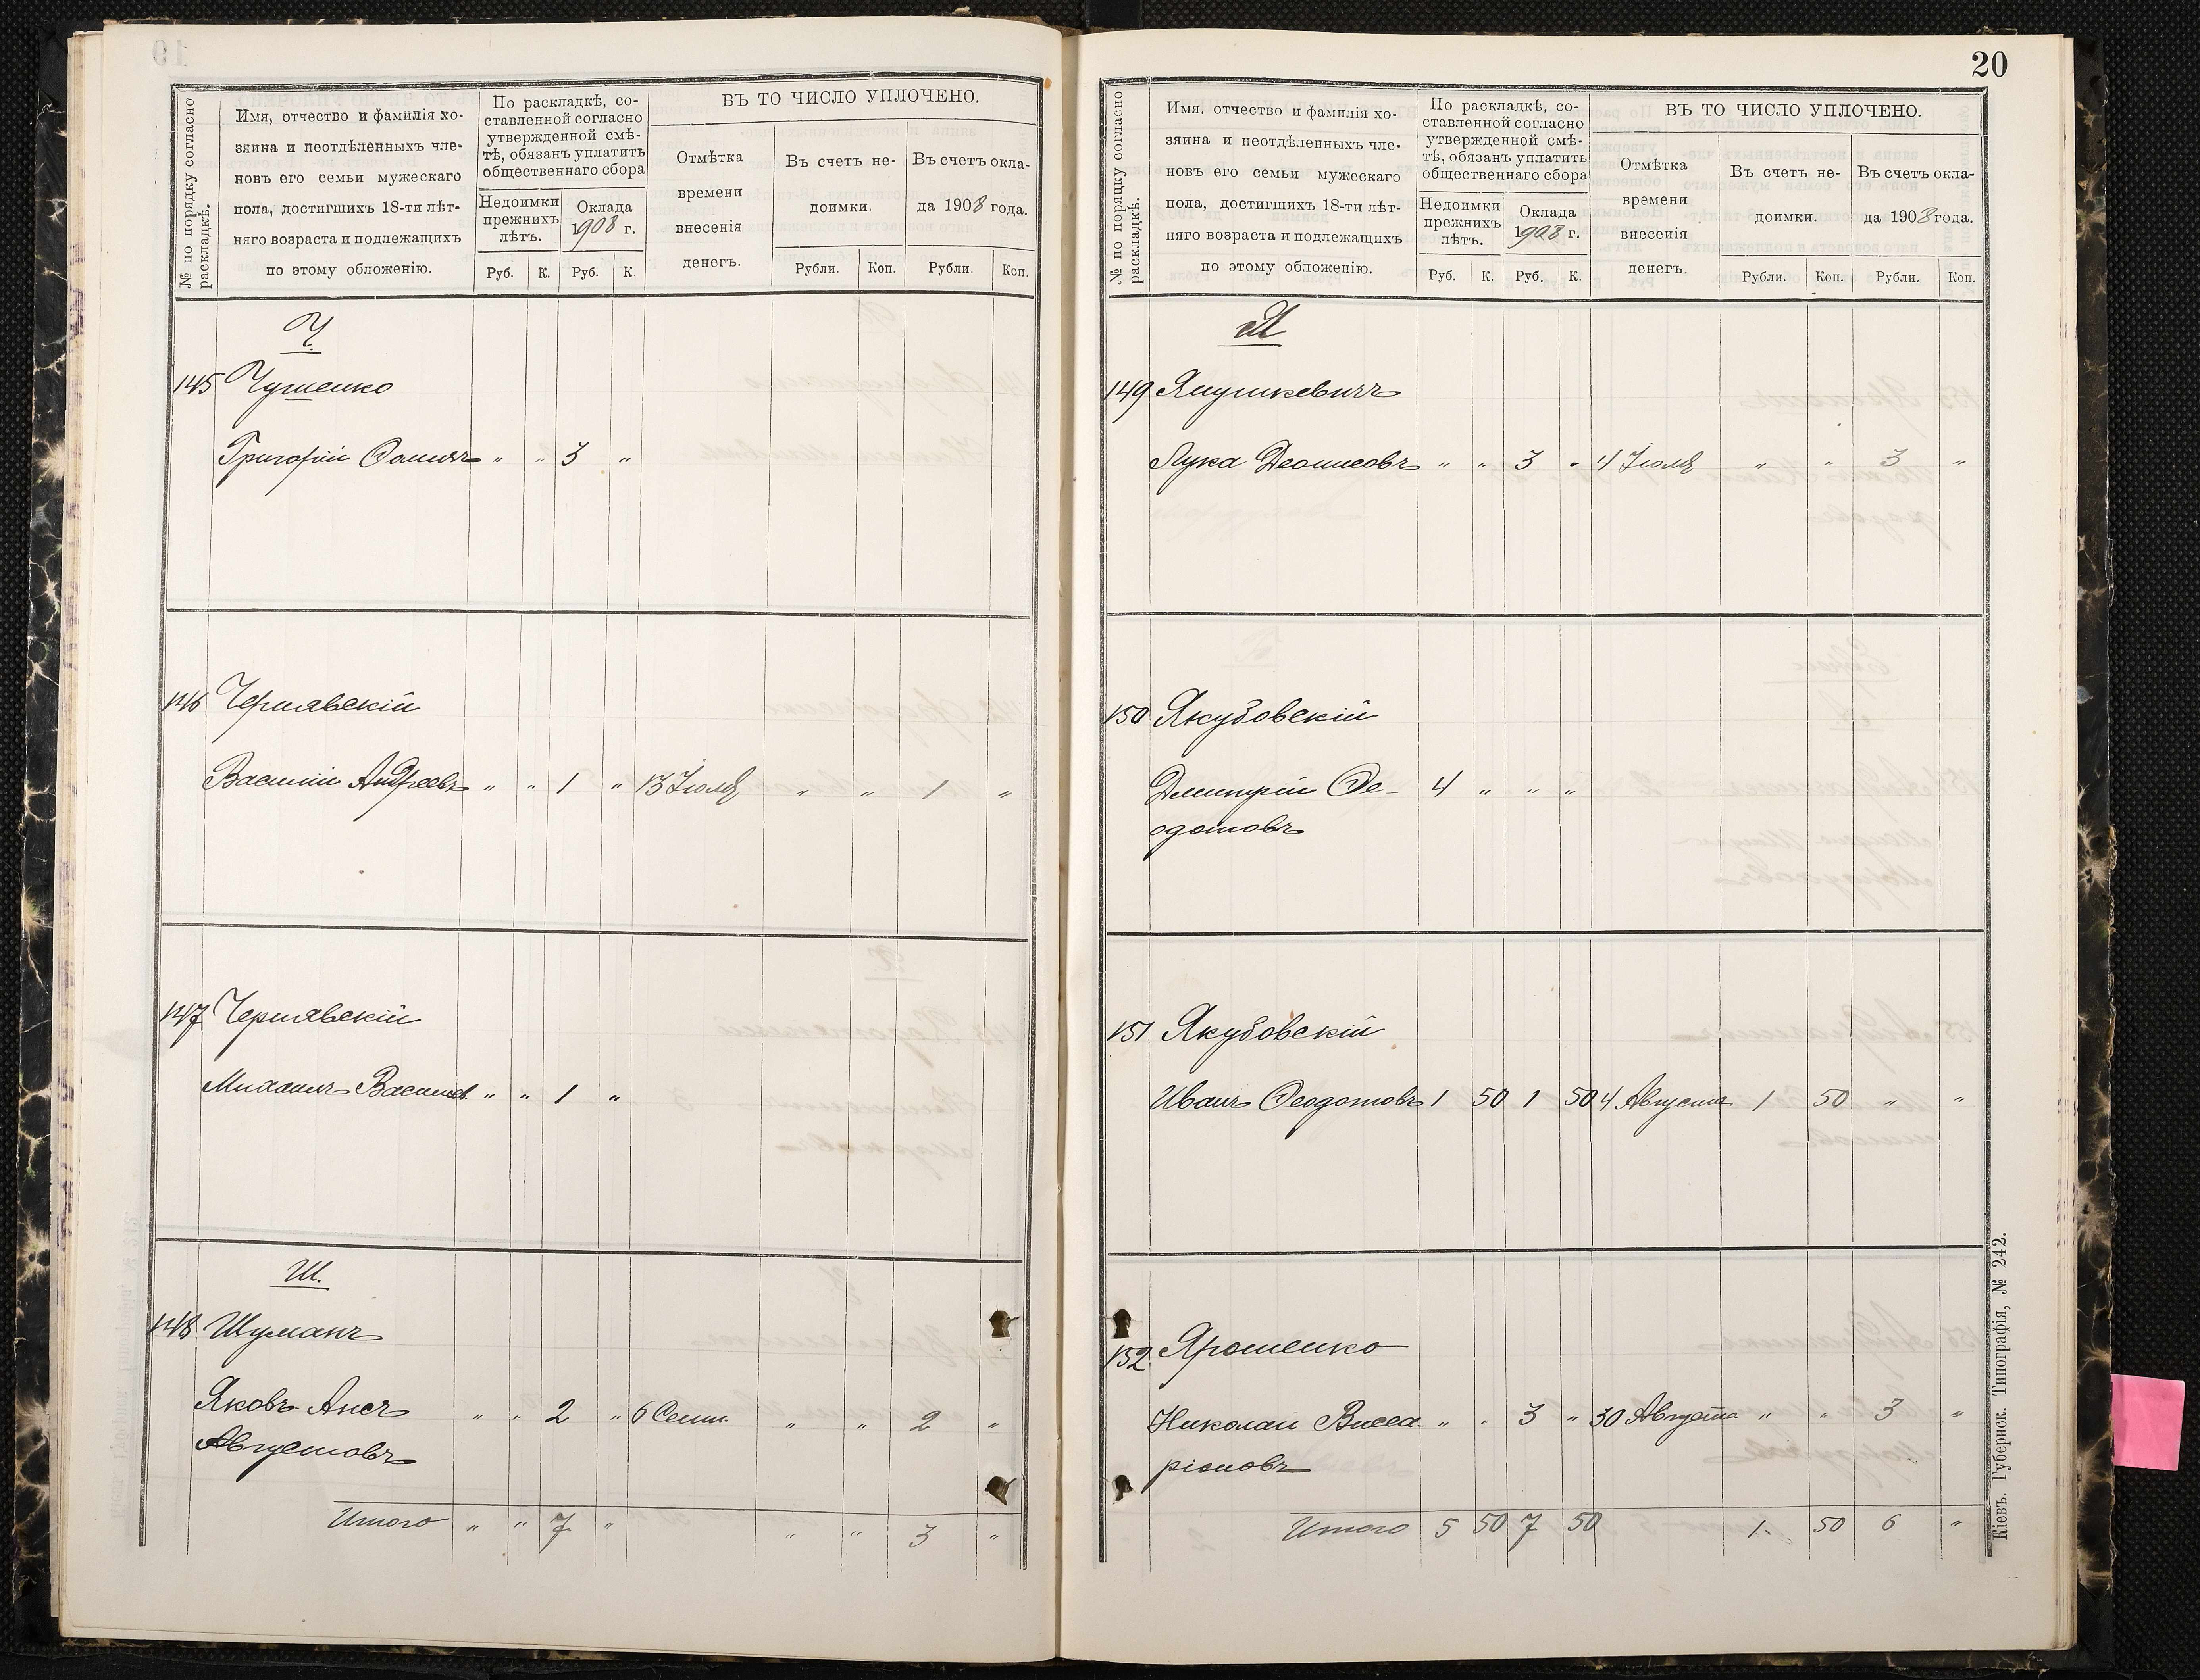 № по порядку согласно
раскладкѣ.
Имя, отчество и фамилія хо-
зяина и неотдѣленныхъ чле-
новъ его семьи мужескаго
пола, достигшихъ 18-ти лѣт-
няго возраста и подлежащихъ
по этому обложенію.
По раскладкѣ, со-
ставленной согласно
утвержденной смѣ-
тѣ, обязанъ уплатить
общественнаго сбора
Недоимки
прежнихъ
лѣтъ.
Оклада
1908 г.
Руб. К. Руб. К.
ВЪ ТО ЧИСЛО УПЛОЧЕНО.
Отмѣтка
времени
внесенія
денегъ.
Въ счетъ не-
доимки.
Въ счетъ окла-
да 1908 года.
Рубли. Коп. Рубли. Коп.
Ч.
145 Чушенко
Григорій Фомичъ " " 3 "
146 Чернявскій
Василій Андреевъ " " 1 " 13 Іюля " " 1 "
147 Чернявскій
Михаилъ Васильев. " " 1 "
Ш.
148 Шуманъ
Яковъ-Ансъ " " 2 " 6 Сент. " " 2 "
Августовъ
Итого " " 7 " " " 3 "
20
№ по порядку согласно
раскладкѣ.
Имя, отчество и фамилія хо-
зяина и неотдѣленныхъ чле-
новъ его семьи мужескаго
пола, достигшихъ 18-ти лѣт-
няго возраста и подлежащихъ
по этому обложенію.
По раскладкѣ, со-
ставленной согласно
утвержденной смѣ-
тѣ, обязанъ уплатить
общественнаго сбора
Недоимки
прежнихъ
лѣтъ.
Оклада
1908 г.
Руб. К. Руб. К.
ВЪ ТО ЧИСЛО УПЛОЧЕНО.
Отмѣтка
времени
внесенія
денегъ.
Въ счетъ не-
доимки.
Въ счетъ окла-
да 1908 года.
Рубли. Коп. Рубли. Коп.
Я
149 Янушкевичъ
Лука Деонисовъ " " 3 " 4 Іюля " " 3 "
150 Якубовскій
Дмитрій Фе- 4 " " "
одотовъ
151 Якубовскій
Иванъ Феодотовъ 1 50 1 50 4 Августа 1 50 " "
152 Ярошенко
Николай Висса- " " 3 " 30 Августа " " 3 "
ріоновъ
Итого 5 50 7 50 1 50 6 "
Кіевъ. Губернск. Типографія, № 242.